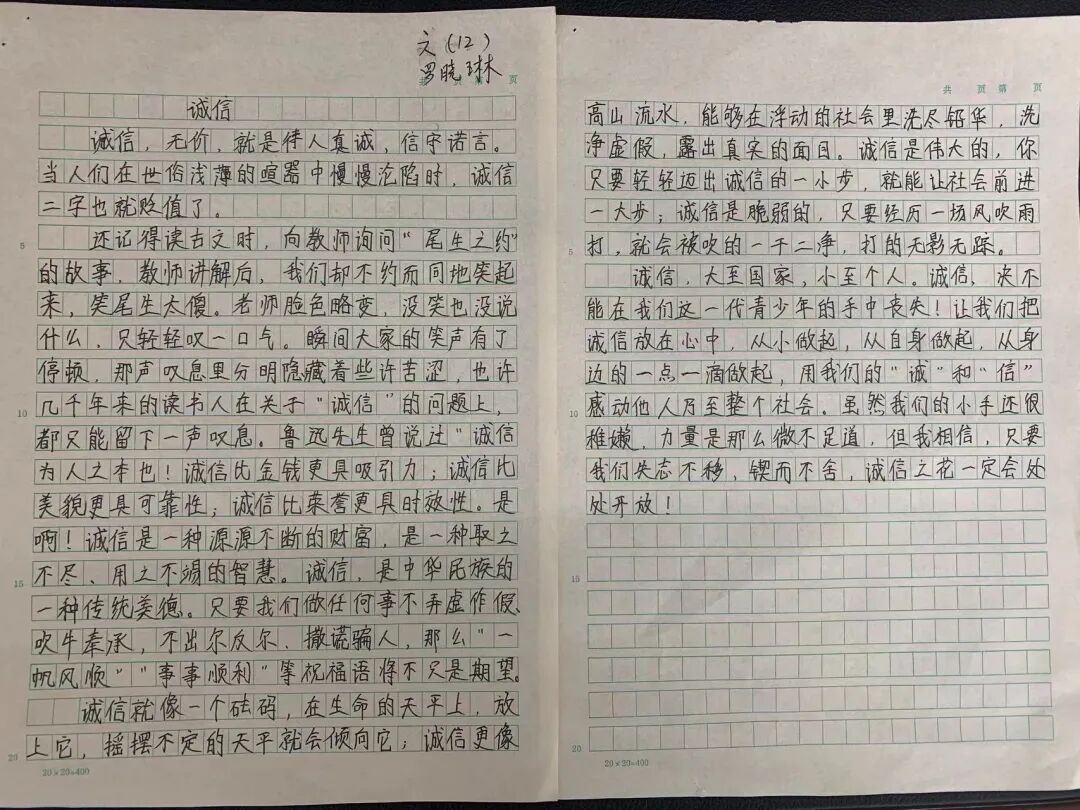 文(12)
罗晓琳
共 页 第 页
诚信
诚信,无价,就是待人真诚,信守诺言。
当人们在世俗浅薄的喧嚣中慢慢沦陷时,诚信
二字也就贬值了。
5 还记得读古文时,向教师询问“尾生之约”
的故事,教师讲解后,我们却不约而同地笑起
来,笑尾生太傻。老师脸色略变,没笑也没说
什么,只轻轻叹一口气。瞬间大家的笑声有了
停顿,那声叹息里分明隐藏着些许苦涩,也许
10 几千年来的读书人在关于“诚信”的问题上,
都只能留下一声叹息。鲁迅先生曾说过“诚信
为人之本也!诚信比金钱更具吸引力;诚信比
美貌更具可靠性;诚信比荣誉更具时效性。是
啊!诚信是一种源源不断的财富,是一种取之
15 不尽、用之不竭的智慧。诚信,是中华民族的
一种传统美德。只要我们做任何事不弄虚作假、
吹牛奉承,不出尔反尔、撒谎骗人,那么“一
帆风顺”“事事顺利”等祝福语将不只是期望。
诚信就像一个砝码,在生命的天平上,放
20 上它,摇摆不定的天平就会倾向它;诚信更像
20×20=400
共 页 第 页
高山流水,能够在浮动的社会里洗尽铅华,洗
净虚假,露出真实的面目。诚信是伟大的,你
只要轻轻迈出诚信的一小步,就能让社会前进
一大步;诚信是脆弱的,只要经历一场风吹雨
5 打,就会被吹的一干二净,打的无影无踪。
诚信,大至国家,小至个人。诚信,决不
能在我们这一代青少年的手中丧失!让我们把
诚信放在心中,从小做起,从自身做起,从身
边的一点一滴做起,用我们的“诚”和“信”
10 感动他人乃至整个社会。虽然我们的小手还很
稚嫩,力量是那么微不足道,但我相信,只要
我们失态不移,锲而不舍,诚信之花一定会处
处开放!
15
20
20×20=400